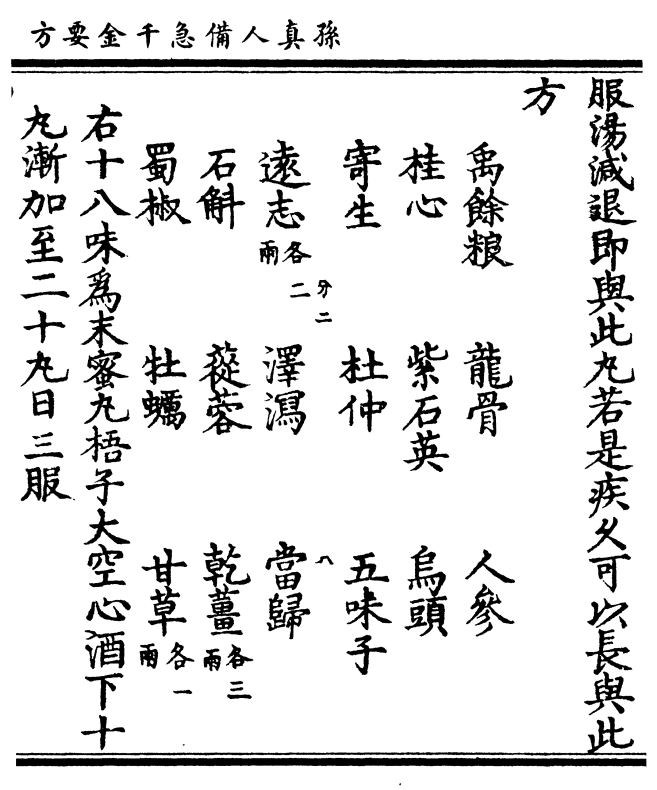 孫真人備急千金要方
服湯減退即與此丸若是疾久可以長與此
方
禹餘粮　龍骨　人參
桂心　紫石英　烏頭
寄生　杜仲　五味子
分二
遠志各二兩　澤瀉　當歸
石斛　蓯蓉　乾薑各三兩
蜀椒　牡蠣　甘草各一兩
右十八味爲末蜜丸梧子大空心酒下十
丸漸加至二十丸日三服